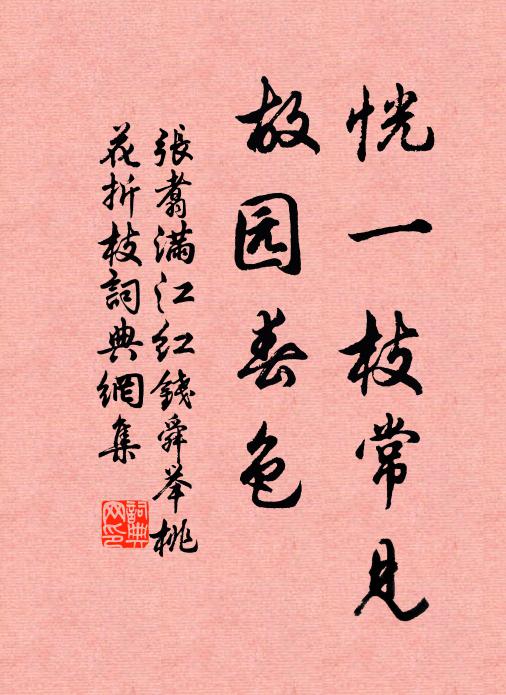 恍一枝常見
故园春色
張翥满江紅錢舜举桃
花折枝詞典網集
詞典
网印